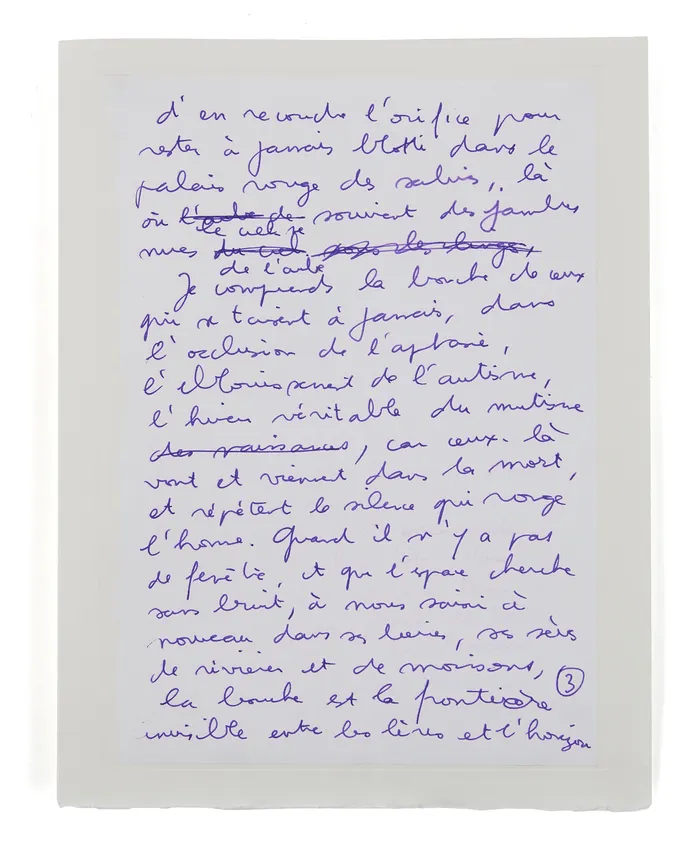 d'en recoudre l'orifice pour
rester à jamais blotti dans le
palais rouge des salives, là
où l'aube de souvient des jambes
le ciel se
nues du ciel
de l'aube
Je comprends la bouche de ceux
qui se taisent à jamais, dans
l'occlusion de l'aphasie,
l'éblouissement de l'autisme,
l'hiver véritable du mutisme
des naissances, car ceux-là
vont et viennent dans la mort,
et répètent le silence qui ronge
l'homme. Quand il n'y a pas
de fenêtre, et que l'espace cherche
sans bruit, à nous saisir à
nouveau dans ses lueurs, ses
de rivières et de moissons,
3
la bouche est la frontière
invisible entre les lèvres et l'horizon